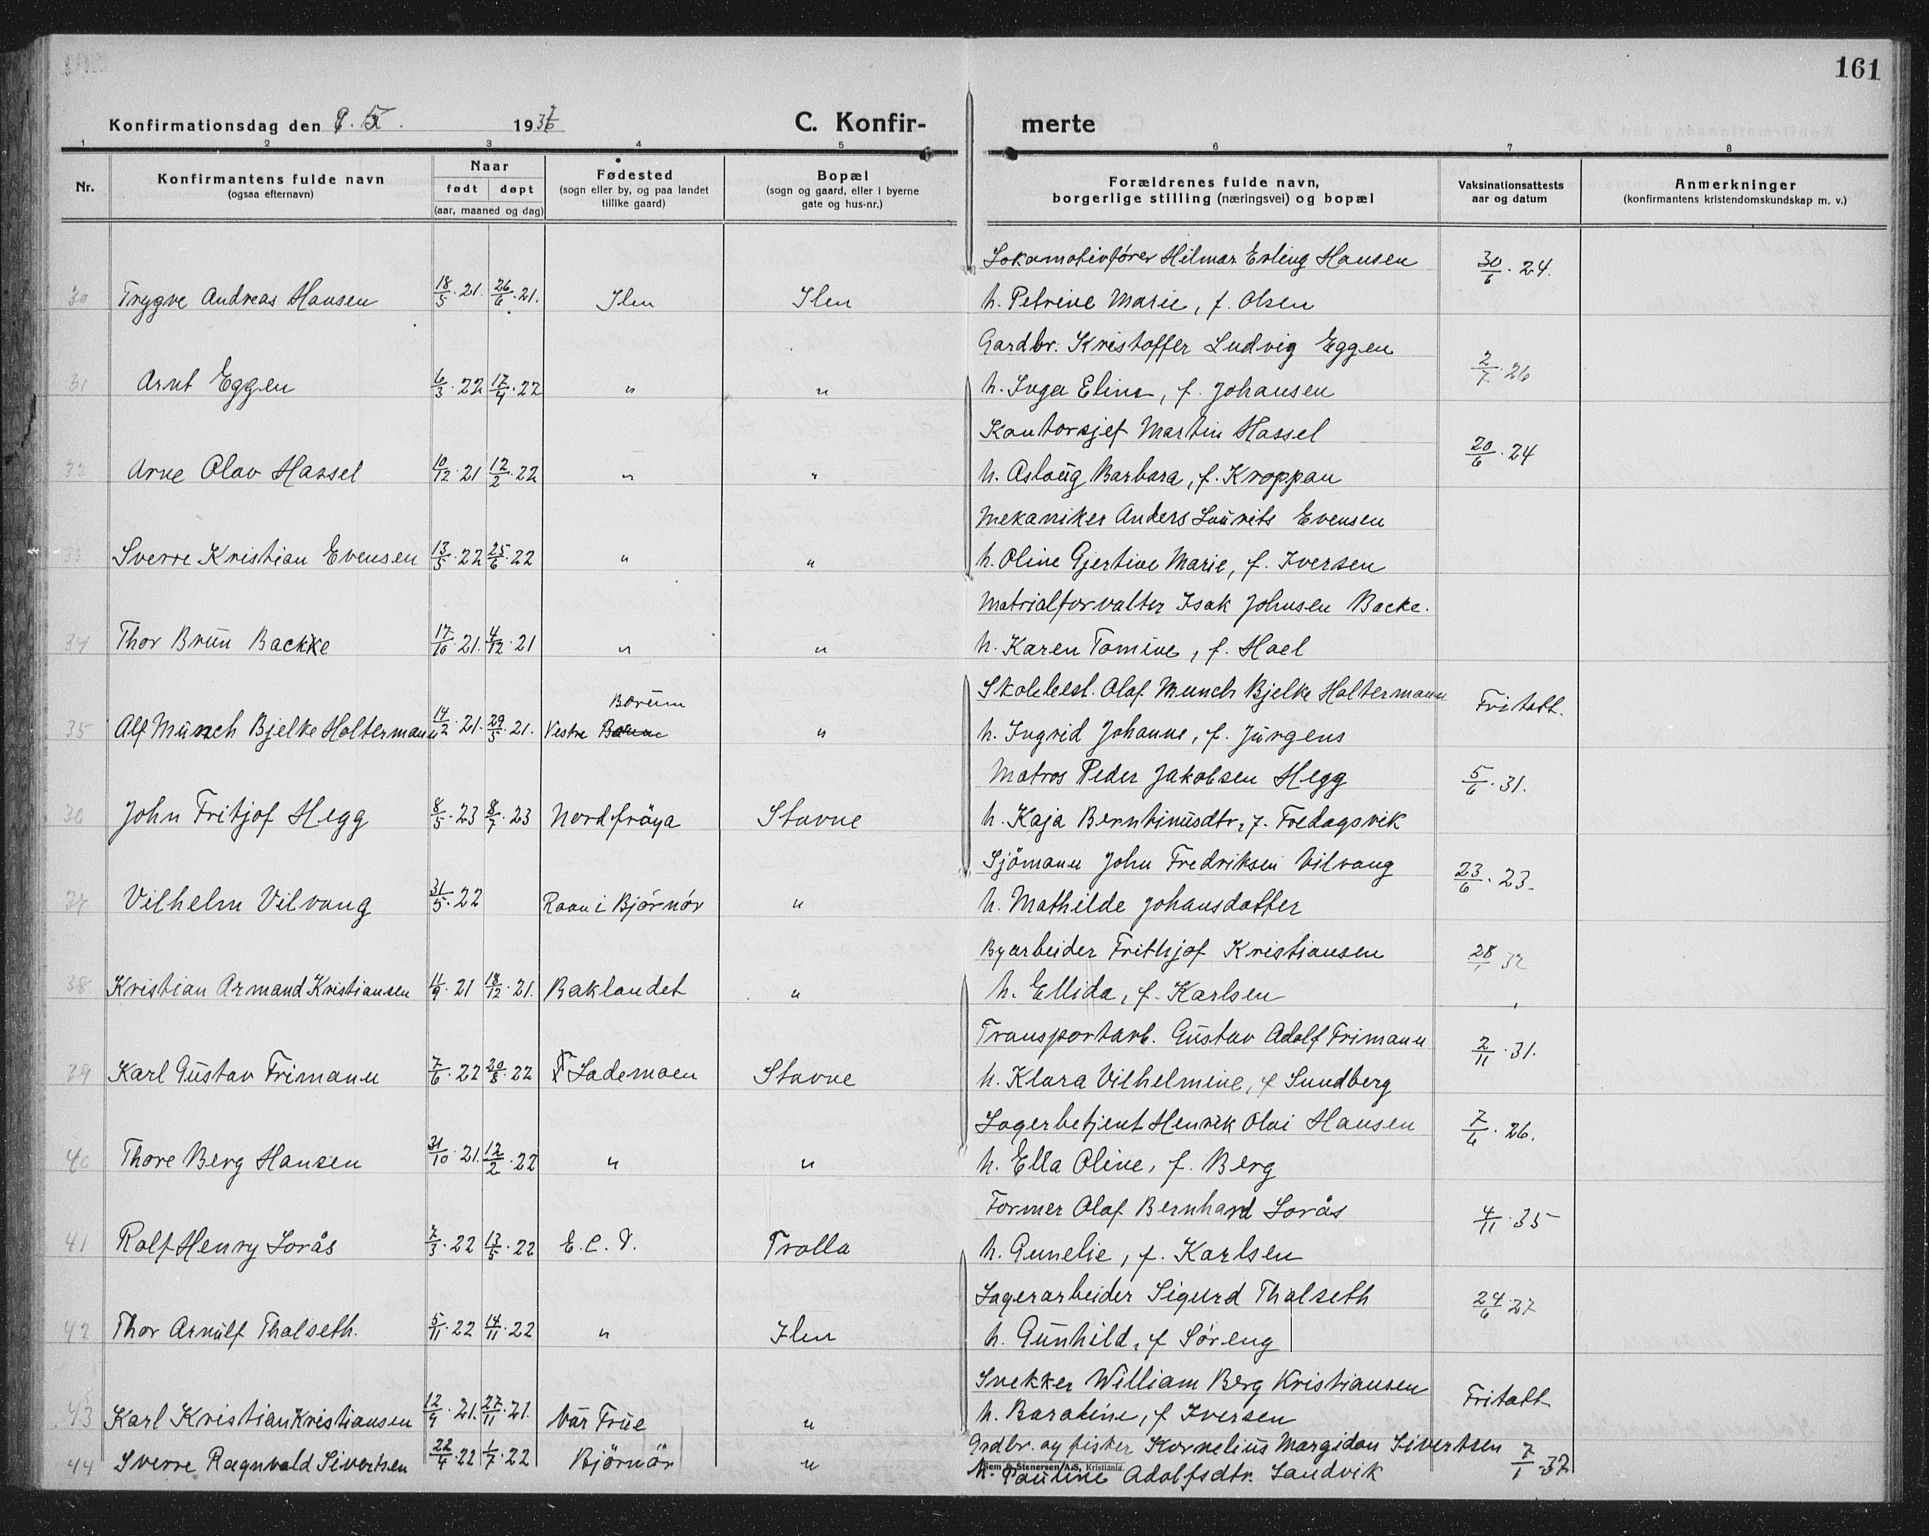 161
Konfirmationsdag den 1937
C. Konfirmerte
1 2 3 4 5 6 7 8
Nr.
Konfirmantens fulde navn
(ogsaa efternavn)
Naar
født døpt
(aar, maaned og dag)
Fødested
(sogn eller by, og paa landet
tillike gaard)
Bopæl
(sogn og gaard, eller i byerne
gate og hus-nr.)
Forældrenes fulde navn,
borgerlige stilling (næringsvei) og bopæl
Vaksinationsattests
aar og datum
Anmerkninger
(konfirmantens kristendomskundskap m. v.)
Lokomotivfører Hilmar Erling Hansen 30/6·24.
30 Trygve Andreas Hansen 18/5·21. 26/6·21. Ilen Ilen h. Petrine Marie, f. Olsen
Gardbr. Kristoffer Ludvig Eggen 2/7·26
31 Arnt Eggen 6/3·22 17/4·22 " " h. Inga Eline, f. Johansen
Kontorsjef Martin Hassel 20/6·24
32 Arne Olav Hassel 10/12·21 12/2·22 " " h. Aslaug Barbara, f. Kroppan
Mekaniker Anders Laurits Evensen
33 Sverre Kristian Evensen 13/5·22 25/6·22 " " h. Oline Gjertine Marie, f. Iversen
Matrialforvalter Isak Johnsen Backe.
34 Thor Brun Backke 17/10·21. 4/12·21 " " h. Karen Tomine, f. Hoel
Skolebest. Olaf Munch Bjelke Holtermann Fritatt.
Bærum
35 Alf Munch Bjelke Holtermann 14/2·21. 29/5·21. Vestre " h. Ingrid Johanne, f. Jürgens
Matros Peder Jakobsen Hegg 5/6·31.
36 John Fritjof Hegg 8/5·23 8/7·23 Nordfröya Stavne h. Kaja Berntinusdtr, f. Fredagsvik
Sjömann John Fredriksen Vilvang 23/6·23.
37 Vilhelm Vilvang 31/5·22 Roan i Björnör " h. Mathilde Johansdatter
Byarbeider Frithjof Kristiansen 28/1 32
38 Kristian Armand Kristiansen 11/9·21 18/12·21. Baklandet " h. Ellida, f. Karlsen
Transportarb. Gustav Adolf Frimann 2/11·31.
39 Karl Gustav Frimann 7/6·22 20/8·22 Lademoen Stavne h. Klara Vilhelmine, f Sundberg
Lagerbetjent Henrik Olai Hansen 7/6·26.
40 Thore Berg Hansen 31/10·21. 12/2·22 " " h. Ella Oline, f. Berg
Former Olaf Bernhard Lorås 4/11·35
41 Rolf Henry Lorås 7/3·22 13/5·22 E. C. D. Trolla h. Gunelie, f. Karlsen
Lagerarbeider Sigurd Thalseth 24/6·27
42 Thor Arnulf Thalseth. 5/11·22 14/11·22 " Ilen h. Gunhild, f Søreng
Snekker William Berg Kristiansen Fritatt
43 Karl Kristian Kristiansen 12/9·21. 27/11·21. Vår Frue " h. Baratine, f Iversen
Grdbr. og fisker Kornelius Margidon Sivertsen 7/1·37
44 Sverre Ragnvald Sivertsen 22/4·22 1/7·22 Björnör " h. Pauline Adolfsdtr. Sandvik
Sem & Stenersen A/S, Kristiania